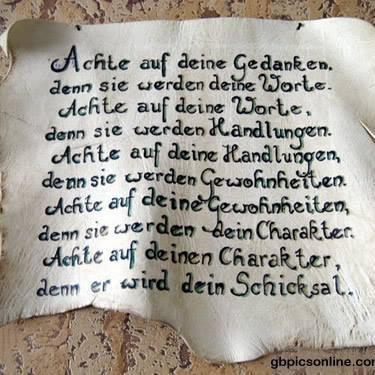 Achte auf deine Gedanken.
denn sie werden deine Worte.
Achte auf deine Worte,
denn sie werden Handlungen.
Achte auf deine Handlungen,
denn sie werden Gewohnheiten.
Achte auf deine Gewohnheiten,
denn sie werden dein Charakter.
Achte auf deinen Charakter,
denn er wird dein Schicksal.
gbpicsonline.com